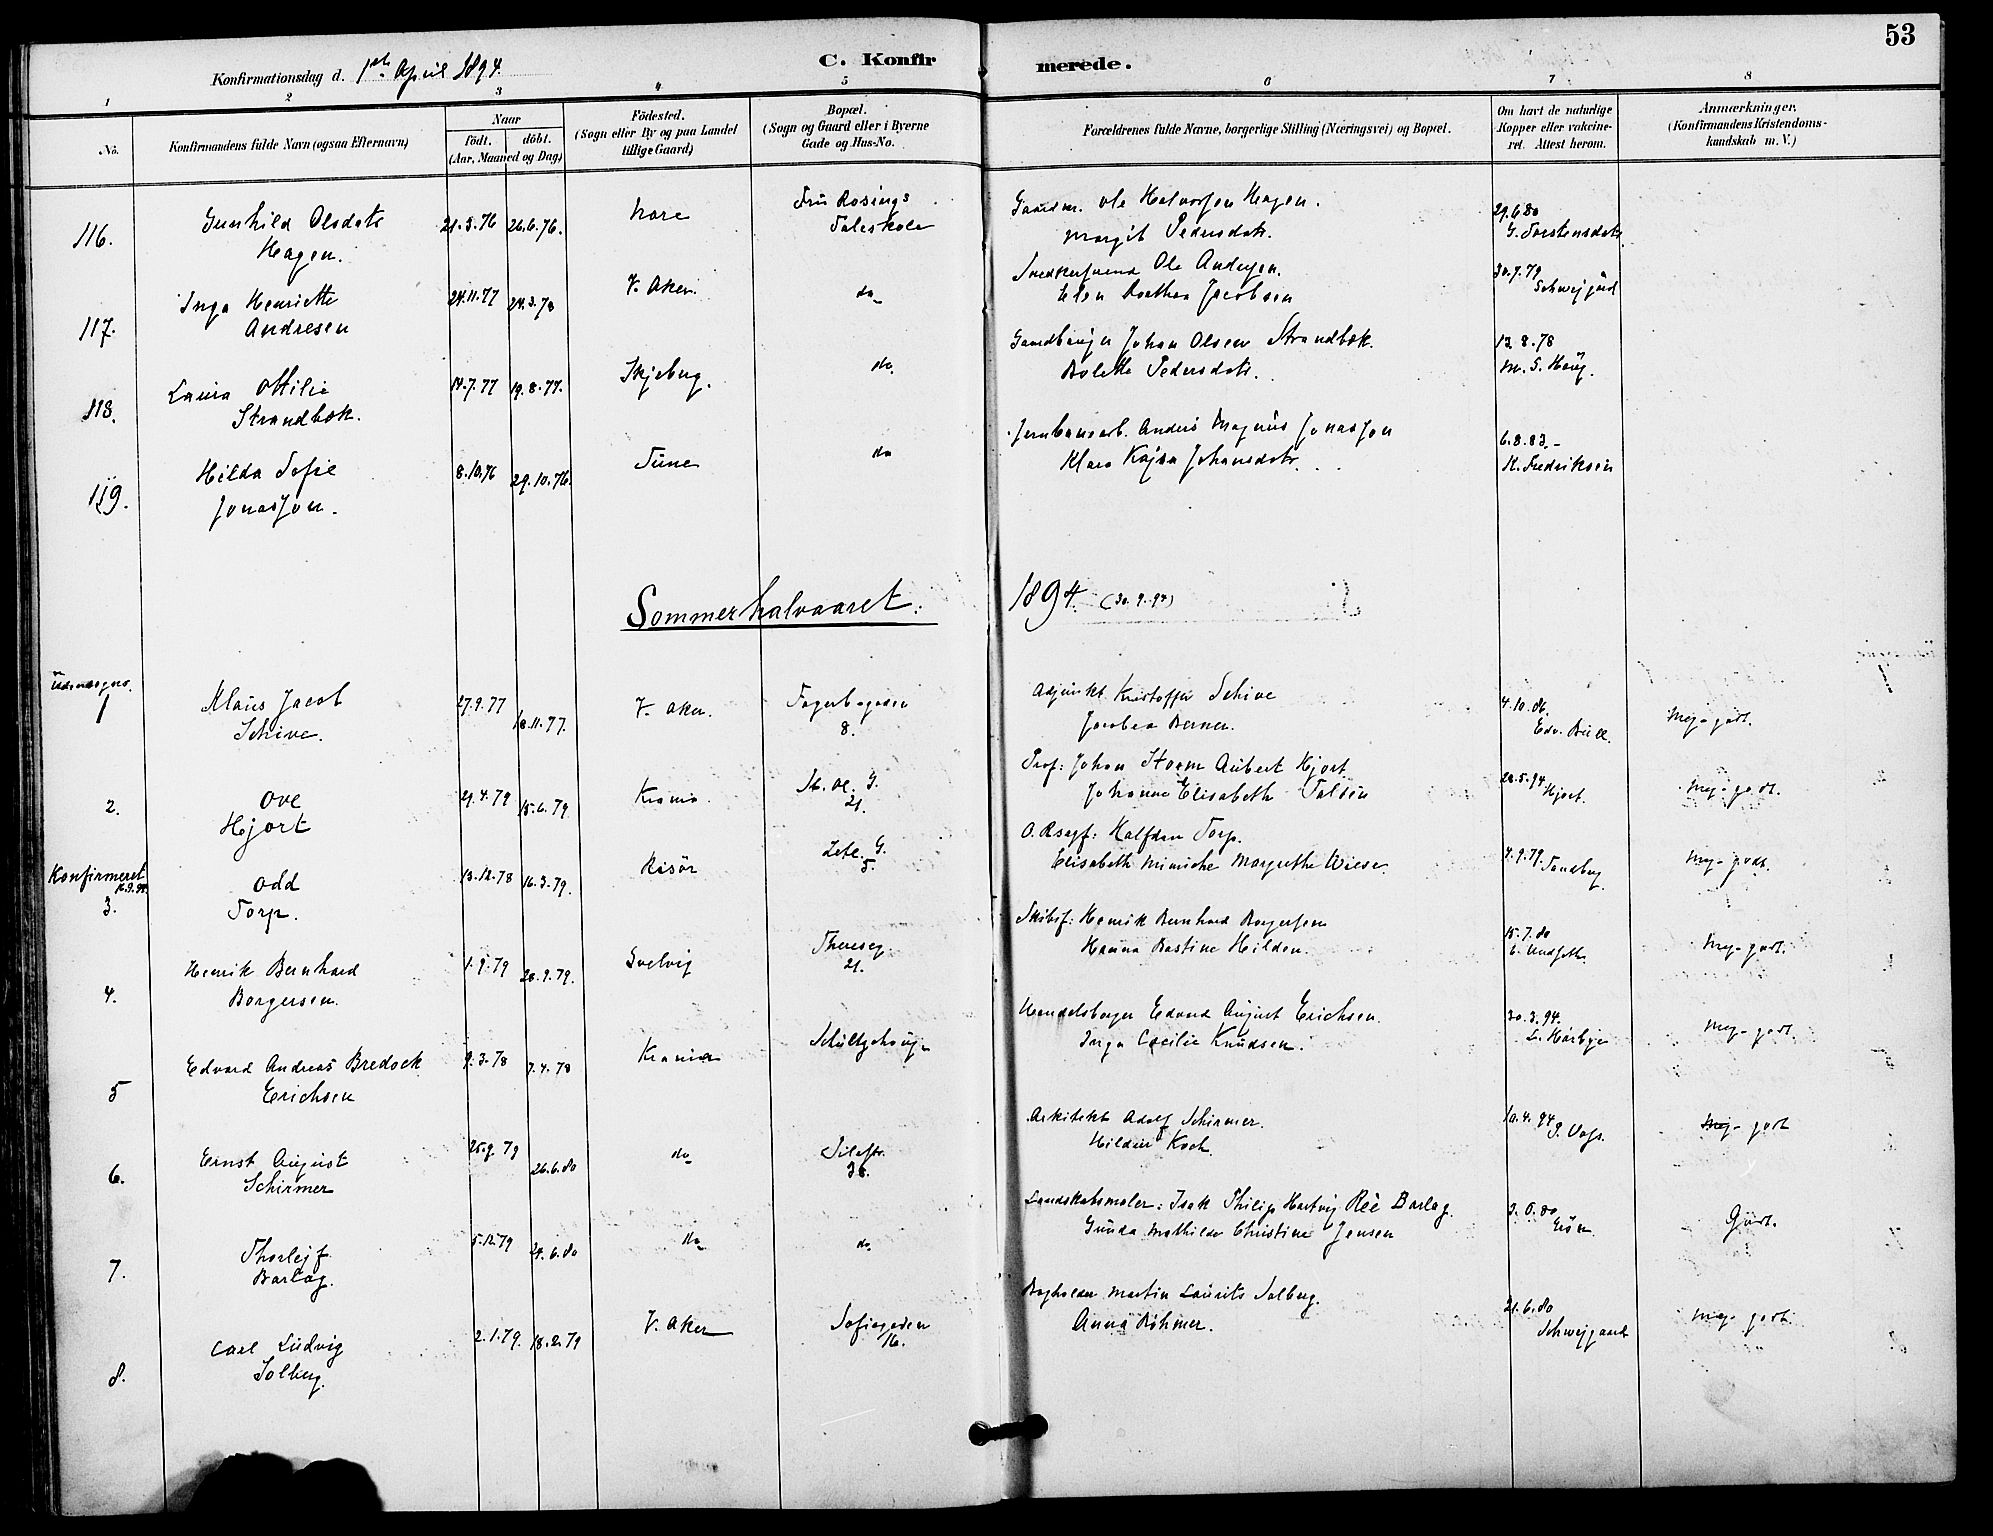 53
Konfirmationsdag d. 1ste April 1894.
C. Konfirmerede.
1 2 3 4 5 6 7 8
No.
Konfirmandens fulde Navn (ogsaa Efternavn)
Naar
födt. döbt.
(Aar, Maaned og Dag)
Födested.
(Sogn eller By og paa Landet
tillige Gaard)
Bopæl.
(Sogn og Gaard eller i Byerne
Gade og Hus-No.
Forældrenes fulde Navne, borgerlige Stilling (Næringsvei) og Bopæl.
Om havt de naturlige
Kopper eller vakcine-
ret. Attest herom.
Anmærkninger.
(Konfirmandens Kristendoms-
kundskab m. V.)
116. Gunhild Olsdatr
Hagen.
21.5.76 26.6.76. Nore
Fru Rosings
Taleskole
Gaardm. Ole Halvorsen Hagen.
Margit Pedersdatr.
29.6.80
G. Torstensdatr
117. Inga Henriette
Andresen
24.11.77 24.3.78 V. Aker. do
Ole Andersen.
Elen Dorthea Jacobsen
30.7.79
Schweigaard
118. Laura Ottilie
Strandbæk.
14.7.77 19.8.77. Skjeberg. do
Gaardbruger Johan Olsen Strandbæk.
Bolette Pedersdatr.
13.8.78
M. S. Haug.
119. Hilda Sofie
Jonassen.
8.10.76 29.10.76. Tune do
Jernbanearb. Anders Magnus Jonassen
Klara Kajsa Johansdatr.
6.8.83.-
K. Fredriksen
Sommerhalvaaret: 1894. (30.9.94)
Udensogns.
1 Klaus Jacob
Schive.
27.9.77 18.11.77. V. Aker.
Fagerborgaden
8.
Adjunkt Kristoffer Schive
Jacobea Berner.
4.10.86.
Edv. Bull.
Meg. godt.
2. Ove
Hjort
21.4.79 15.6.79. Krania.
St. Ol. G.
21.
Prof: Johan Storm Aubert Hjort
Johanne Elisabeth Falsen
28.5.94 Hjort.
Meg. godt.
Konfirmeret
16.9.94
3. Odd
Torp.
13.12.78 16.3.79. Risör
Lete. G.
5.
O.Rsagf: Halfdan Torp.
Elisabeth Miniche Margrethe Wiese.
4.9.79. Sandberg.
Meg. godt.
4. Henrik Bernhard
Borgersen.
1.9.79 28.9.79. Svelvig
Thereseg.
21.
Skibsf: Henrik Bernhard Borgersen
Hanna Bastine Hilden.
15.7.80
Meg. godt.
5 Edvard Andreas Bredock
Erichsen
9.3.78 7.4.78 Krania
Schultzehaugen
Handelsborger Edvard August Erichsen.
Inga Cecilie Knudsen.
30.3.94.
L. Harbye
Meg. godt.
6. Ernst August
Schirmer
25.9.79 26.6.80 do
Pilestr.
38.
Arkitekt Adolf Schirmer.
Hildur Koch.
10.4.94 P. Voss.
Meg. godt
7. Thorleif
Barlag.
5.12.79 24.6.80 do do
Landskabsmaler: Isak Philip Hartvig Rée Barlag.
Gunda Mathilde Christine Jensen
Godt.
8. Carl Ludvig
Solberg.
2.1.79. 18.2.79 V. Aker
Sofiegaden
16.
Bogholder Martin Laurits Solberg.
Anna Böhmer.
21.6.80
Schweigaard
Meg. godt.